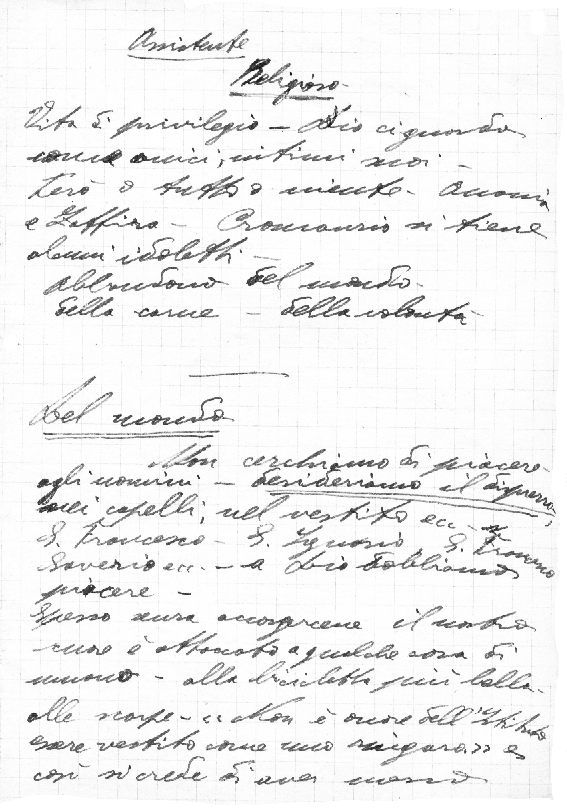 Assistente
Religioso
Vita di privilegio - Dio ci guarda
come amici, intimi suoi -
Però o tutto o niente - Anania
e Zaffira - Cromazio si tiene
alcuni idoletti -
Abbandono del mondo -
della carne - della volontà
Del mondo
Non cerchiamo di piacere
agli uomini - desideriamo il disprezzo,
nei capelli, nel vestito ecc -
S. Francesco - S. Ignazio, S. Francesco
Saverio ecc. - a Dio dobbiamo
piacere -
Spesso senza accorgercene il nostro
cuore è attaccato a qualche cosa di
umano - alla bicicletta più bella -
alle scarpe - "Non è onore dell'Istituto
essere vestito come uno zingaro" e
così si crede di aver messo